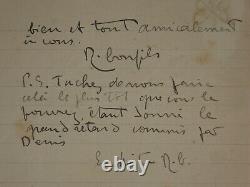 bien et tout amicalement
à vous.
R. Bonfils
P.S. Tachez de nous faire
cela le plus tôt que vous le
pourrez, étant donné le
grand retard commis par
Denis
R.b.